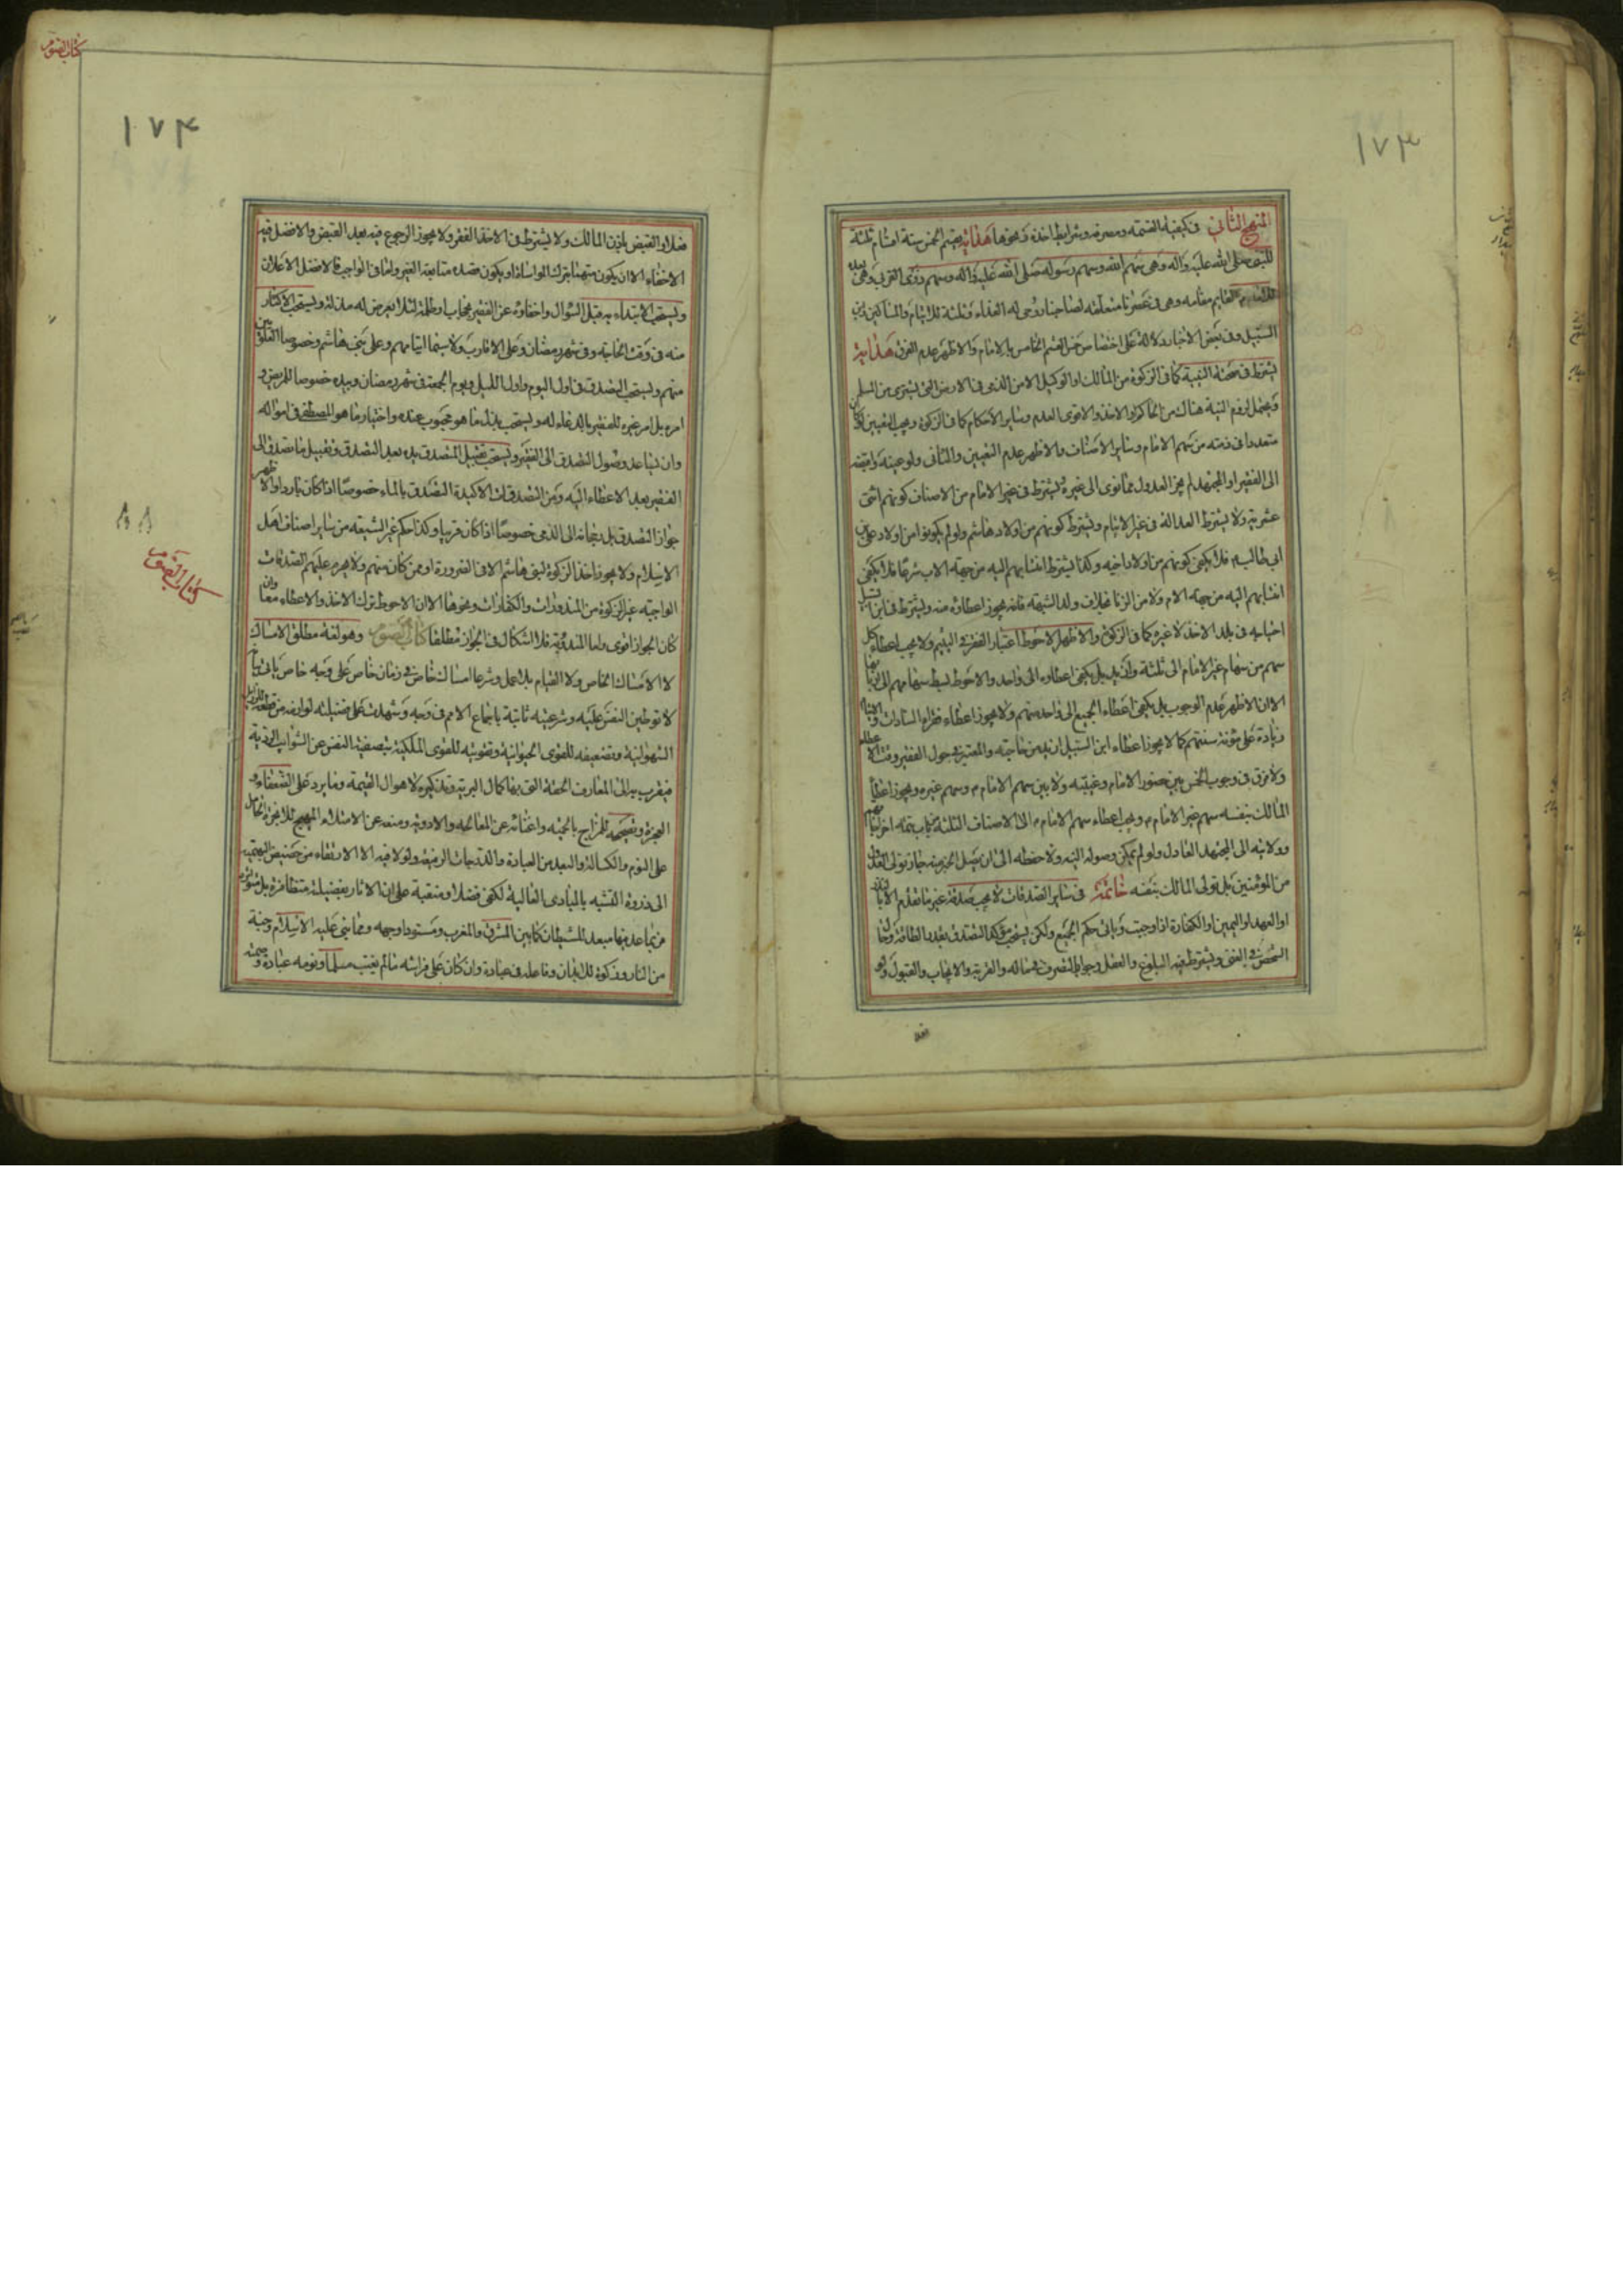 ١٧٣
المنهج الثاني في كيفية القسمة ومصرفه وشرايط اخذه ونحوها هداية يقسم الخمس ستة اقسام ثلثة
للنبي صلى الله عليه واله وهي سهم الله وسهم رسوله صلى الله عليه واله وسهم ذوي القربى وهي بعده
للامام القايم مقامه وهي في عصرنا متعلقة لصاحبنا روحي له الفداء وثلثة للايتام والمساكين وابن
السبيل وفي بعض الاخبار دلالة على اختصاص خمس القسم الخامس بالامام والاظهر عدم الفرق هداية
يشترط في صحته النية كما في الزكوة من المالك او الوكيل الا من الذمي في الارض التي يشتري من المسلم
ويحتمل لزوم النية هناك من الحاكم او الاخذ والاقوى العدم وساير الاحكام كما في الزكوة ويجب التعيين لو كان
متعددا في ذمته من سهم الامام وساير الاصناف والاظهر عدم التعيين والثاني ولو عينه واقبضه
الى الفقير او المجتهد لم يجز العدول مما نوى الى غيره يشترط في غير الامام من الاصناف كونهم اثنى
عشرية ولا يشترط العدالة في غير الايتام ويشترط كونهم من اولاد هاشم ولو لم يكونوا من اولاد علي بن
ابي طالب فلا يكفي كونهم من اولاد اخيه وكذا يشترط انتسابهم اليه من جهة الاب شرعا فلا يكفي
انتسابهم اليه من جهة الام ولا من الزنا بخلاف ولد الشبهة فانه يجوز اعطاؤه منه ويشترط في ابن السبيل
احتياجه في بلد الاخذ لا غيره كما في الزكوة والاظهر الاحوط اعتبار الفقر في اليتيم ولا يجب اعطاء كل
سهم من سهام غير الامام الى ثلثة وازيد بل يكفي اعطاؤه الى واحد والاحوط بسط سهامهم الى اربابها
الا ان الاظهر عدم الوجوب بل يكفي اعطاء الجميع الى واحد منهم ولا يجوز اعطاء فقراء السادات
زيادة على مؤنة سنتهم كما لا يجوز اعطاء ابن السبيل ازيد من حاجته والمعتبر في حول الفقير وقت الاعطاء
ولا فرق في وجوب الخمس بين حضور الامام وغيبته ولا بين سهم الامام م وسهم غيره ويجوز اعطاء
المالك بنفسه سهم غير الامام م ويجب اعطاء سهم الامام م الى الاصناف الثلثة من باب تتمة اخراجاتهم
وولايته الى المجتهد العادل ولو لم يمكن وصوله اليه ولا حفظه الى ان يصل الخبر منه جاز تولي العدول
من المؤمنين بل تولى المالك بنفسه خاتمة في ساير الصدقات لا يجب صدقة غير ما تقدم الا بالنذر
او العهد او اليمين او الكفارة اذا وجبت وياتي حكم الجميع ولكن يستحب مؤكدا التصدق بقدر الطاقة
الشخص في الغنى ويشترط فيه البلوغ والعقل وجواز التصرف في ماله والقربة والايجاب والقبول ولو
فعلا
كتاب الصوم
١٧٤
فعلا او القبض باذن المالك ولا يشترط في الاخذ الفقر ولا يجوز الرجوع فيه بعد القبض والافضل فيه
الاخفاء الا ان يكون متهما بترك المواساة او يكون قصده متابعة الغير واما في الواجب فالافضل الاعلان
ويستحب الابتداء به قبل السؤال واخفاؤه عن الفقير بحجاب او ظلمة لئلا يعرض له مذلة ويستحب الاكثار
منه في وقت الحاجة وفي شهر رمضان وعلى الاقارب ولا سيما اليتامى منهم وعلى بني هاشم وخصوصا العلويين
منهم ويستحب التصدق في اول اليوم واول الليل ويوم الجمعة في شهر رمضان وبيده خصوصا للمريض و
امره بل امر غيره للفقير بالدعاء له ويستحب بذل ما هو محبوب عنده واختيار ما هو المصطفى في امواله
وان تباعد وصول التصدق الى الفقير ويستحب تقبيل المتصدق يده بعد التصدق وتقبيل ما تصدق الى
الفقير بعد الاعطاء اليه ومن التصدقات الاكيدة التصدق بالماء خصوصا اذا كان باردا والاظهر
جواز التصدق بل رجحانه الى الذمي خصوصا اذا كان قريبا وكذا حكم غير الشيعة من ساير اصناف اهل
الاسلام ولا يجوز اخذ الزكوة لبني هاشم الا في الضرورة او ممن كان منهم ولا يحرم عليهم الصدقات
الواجبة غير الزكوة من المنذورات والكفارات ونحوها الا ان الاحوط ترك الاخذ والاعطاء معا وان
كان الجواز اقوى واما المندوبة فلا اشكال في الجواز مطلقا كتاب الصوم وهو لغة مطلق الامساك
لا الامساك الخاص ولا القيام بلا عمل وشرعا امساك خاص في زمان خاص على وجه خاص ياتي بيانه
لا توطين النفس عليه وشرعيته ثابتة باجماع الامم في وجه وشهدت على فضيلته لوازمه من قطعه للرذايل
الشهوانية وتضعيفه للقوى الحيوانية وتقويته للقوى الملكية بتصفية النفس عن الشوايب الردية
فيقرب به الى المعارف الحقة التي بها كمال البرية وتذكيره لاهوال القيمة وما يرد على الضعفاء و
العجزة وتصحيحه للمزاج بالحمية واغنائه عن المعالجة والادوية ومنعه عن الامتلاء المهيج للابخرة الحامل
على النوم والكسالة والبعد من العبادة والدرجات الرفيعة ولو لا فيه الا الارتقاء من حضيض البهيمية
الى ذروة التشبه بالمبادي العالية لكفى فضلا ومنقبة على ان الاثار بفضيلته متظافرة بل متواترة
من تباعد بها مبعد للشيطان كما بين المشرق والمغرب ومسود لوجهه ومما بني عليه الاسلام وجنة
من النار وزكوة للابدان وفاعله في عبادة وان كان على فراشه نائم يغتب مسلما ونومه عبادة وصمته
كتاب الصوم